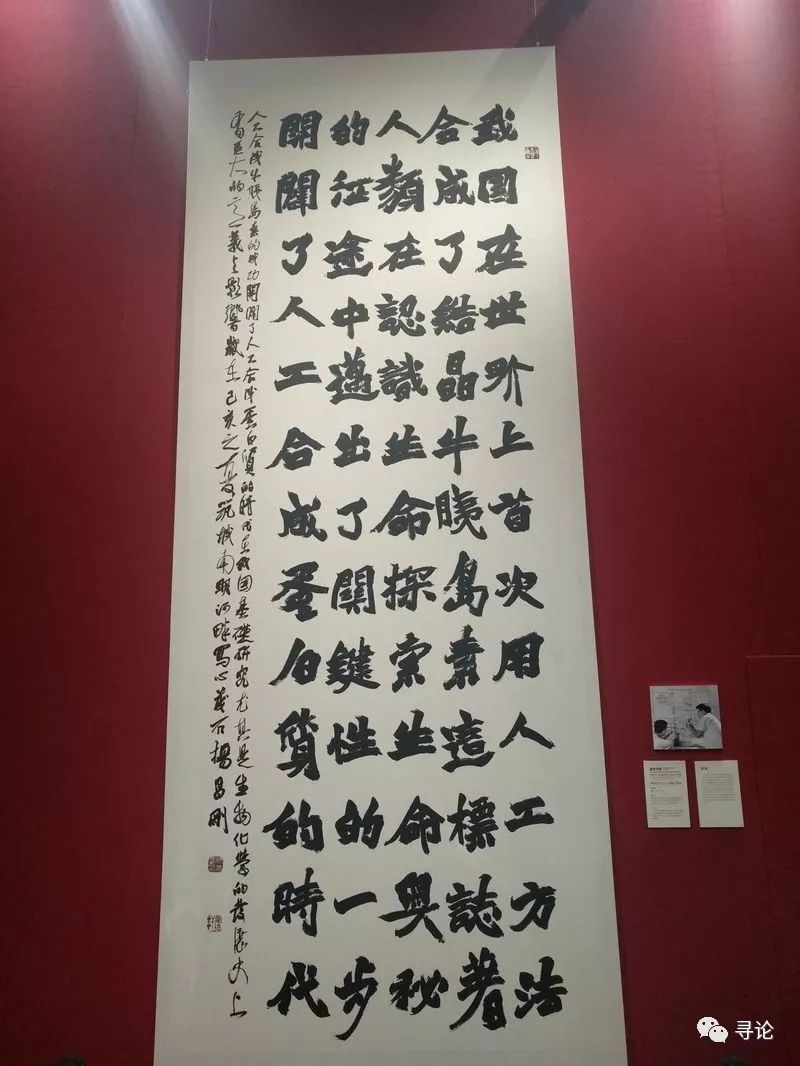 我國在世界上首次用人工方法
合成了結晶牛胰島素這標誌著
人類在認識生命探索生命奧秘
的征途中邁出了關鍵性的一步
開闢了人工合成蛋白質的時代
人工合成牛胰島素的成功開闢了人工合成蛋白質的時代在我國基礎研究尤其是生物化學的發展史上
有巨大的意義與影響歲在己亥之筑城南明河畔寫心楊昌剛
寻论